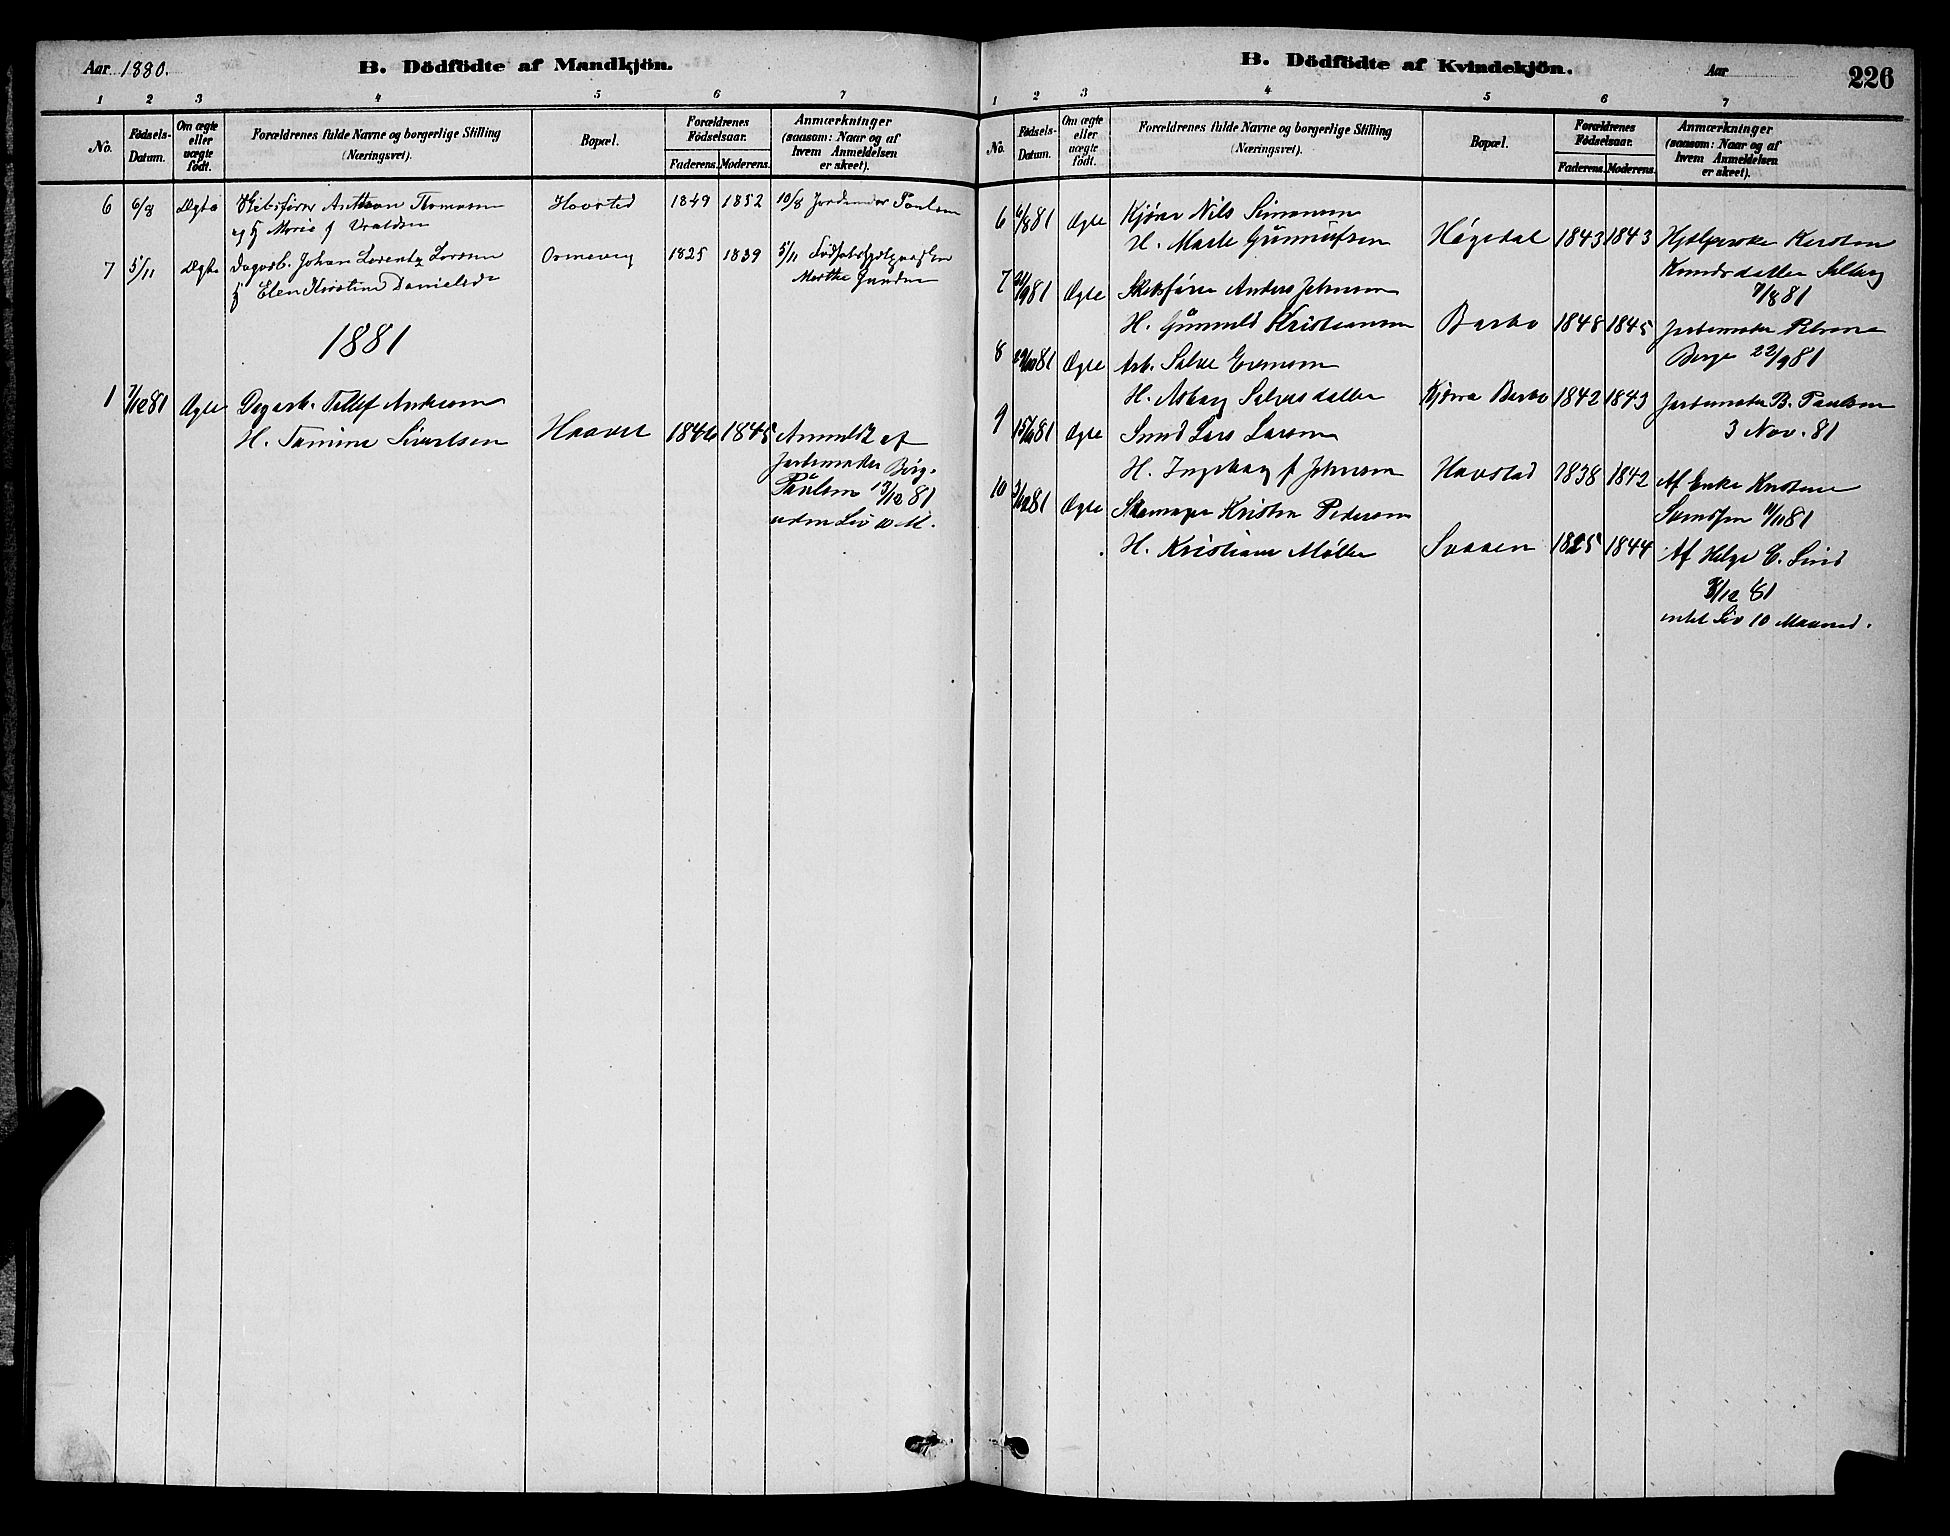 Aar 1880.
B. Dödfödte af Mandkjön.
1 2 3 4 5 6 7
No.
Födsels-
Datum.
Om ægte
eller
uægte
født.
Forældrenes fulde Navne og borgerlige Stilling
(Næringsvei).
Bopæl.
Forældrenes
Födselsaar.
Faderens. Moderens.
Anmærkninger
(saasom: Naar og af
hvem Anmeldelsen
er skeet).
6 6/8 Ægte Skibsfører Anthon Thomasen Havsted 1849 1852 10/8 Jordemoder Paulsen
og H Marie f
7 5/11 Ægte Dagarb. Johan Lorentz Larsen Ormevig 1825 1839 5/11
H Elen Kirstine Danielsdr Marthe
1881
1 7/12 81 Ægte Dagarb. Tellef Andersen
H. Tomine Sivertsen 1846 1845 Anmeldt af
Jordemoder Birg.
Paulsen 13/12 81
uden Liv 10 M.
B. Dödfödte af Kvindekjön.
Aar
226
1 2 3 4 5 6 7
No.
Födsels-
Datum.
Om ægte
eller
uægte
födt.
Forældrenes fulde Navne og borgerlige Stilling
(Næringsvei).
Bopæl.
Forældrenes
Födselsaar.
Faderens. Moderens.
Anmærkninger
(saasom: Naar og af
hvem Anmeldelsen
er skeet).
6 6/8 81 Ægte Nils Simonsen
H. Marte Gunnufsen Høgedal 1843 1843 Kirsten
Knudsdatter
7/8 81
7 21/9 81 Ægte Skibsfører Anders Johnsen
H. Gunnild Kristiansen Barbo 1848 1845 Jordemoder
Berge 22/9 81
8 29/10 81 Ægte Arb. Salve Evensen
H. Asborg Salvesdatter Kjørra Barbo 1842 1843 Jordemoder B. Paulsen
3 Nov. 81
9 81 Ægte Smed Lars Larsen
H. Ingeborg f Johnsen Havstad 1838 1842 Af Enke Kirstine
11/11 81
10 3/12 81 Ægte Skomager Kristen Pedersen
H. Kristiane Møller Svaaen 1825 1844 Af Helge E. Lund
3/12 81
intet Liv 10 Maaned.